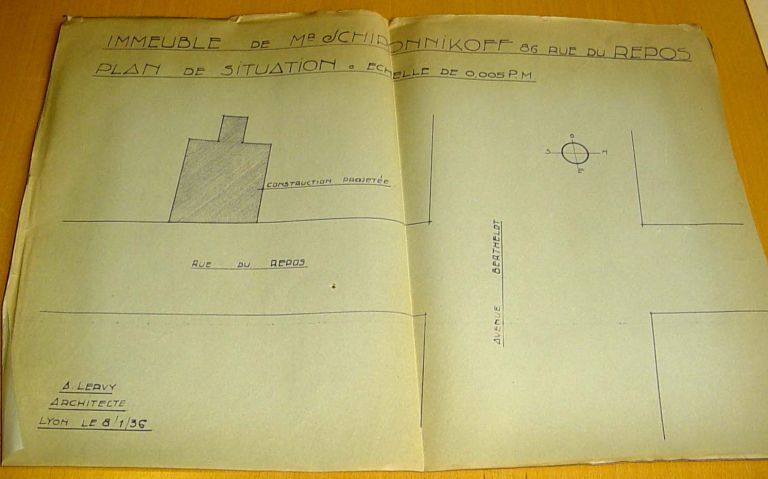 IMMEUBLE DE MR SCHIRONNIKOFF 86 RUE DU REPOS
PLAN DE SITUATION • ECHELLE DE 0,005 P.M.
O
S N
E
CONSTRUCTION PROJETÉE
RUE DU REPOS
AVENUE BERTHELOT
A. LERVY
ARCHITECTE
LYON LE 8/1/36